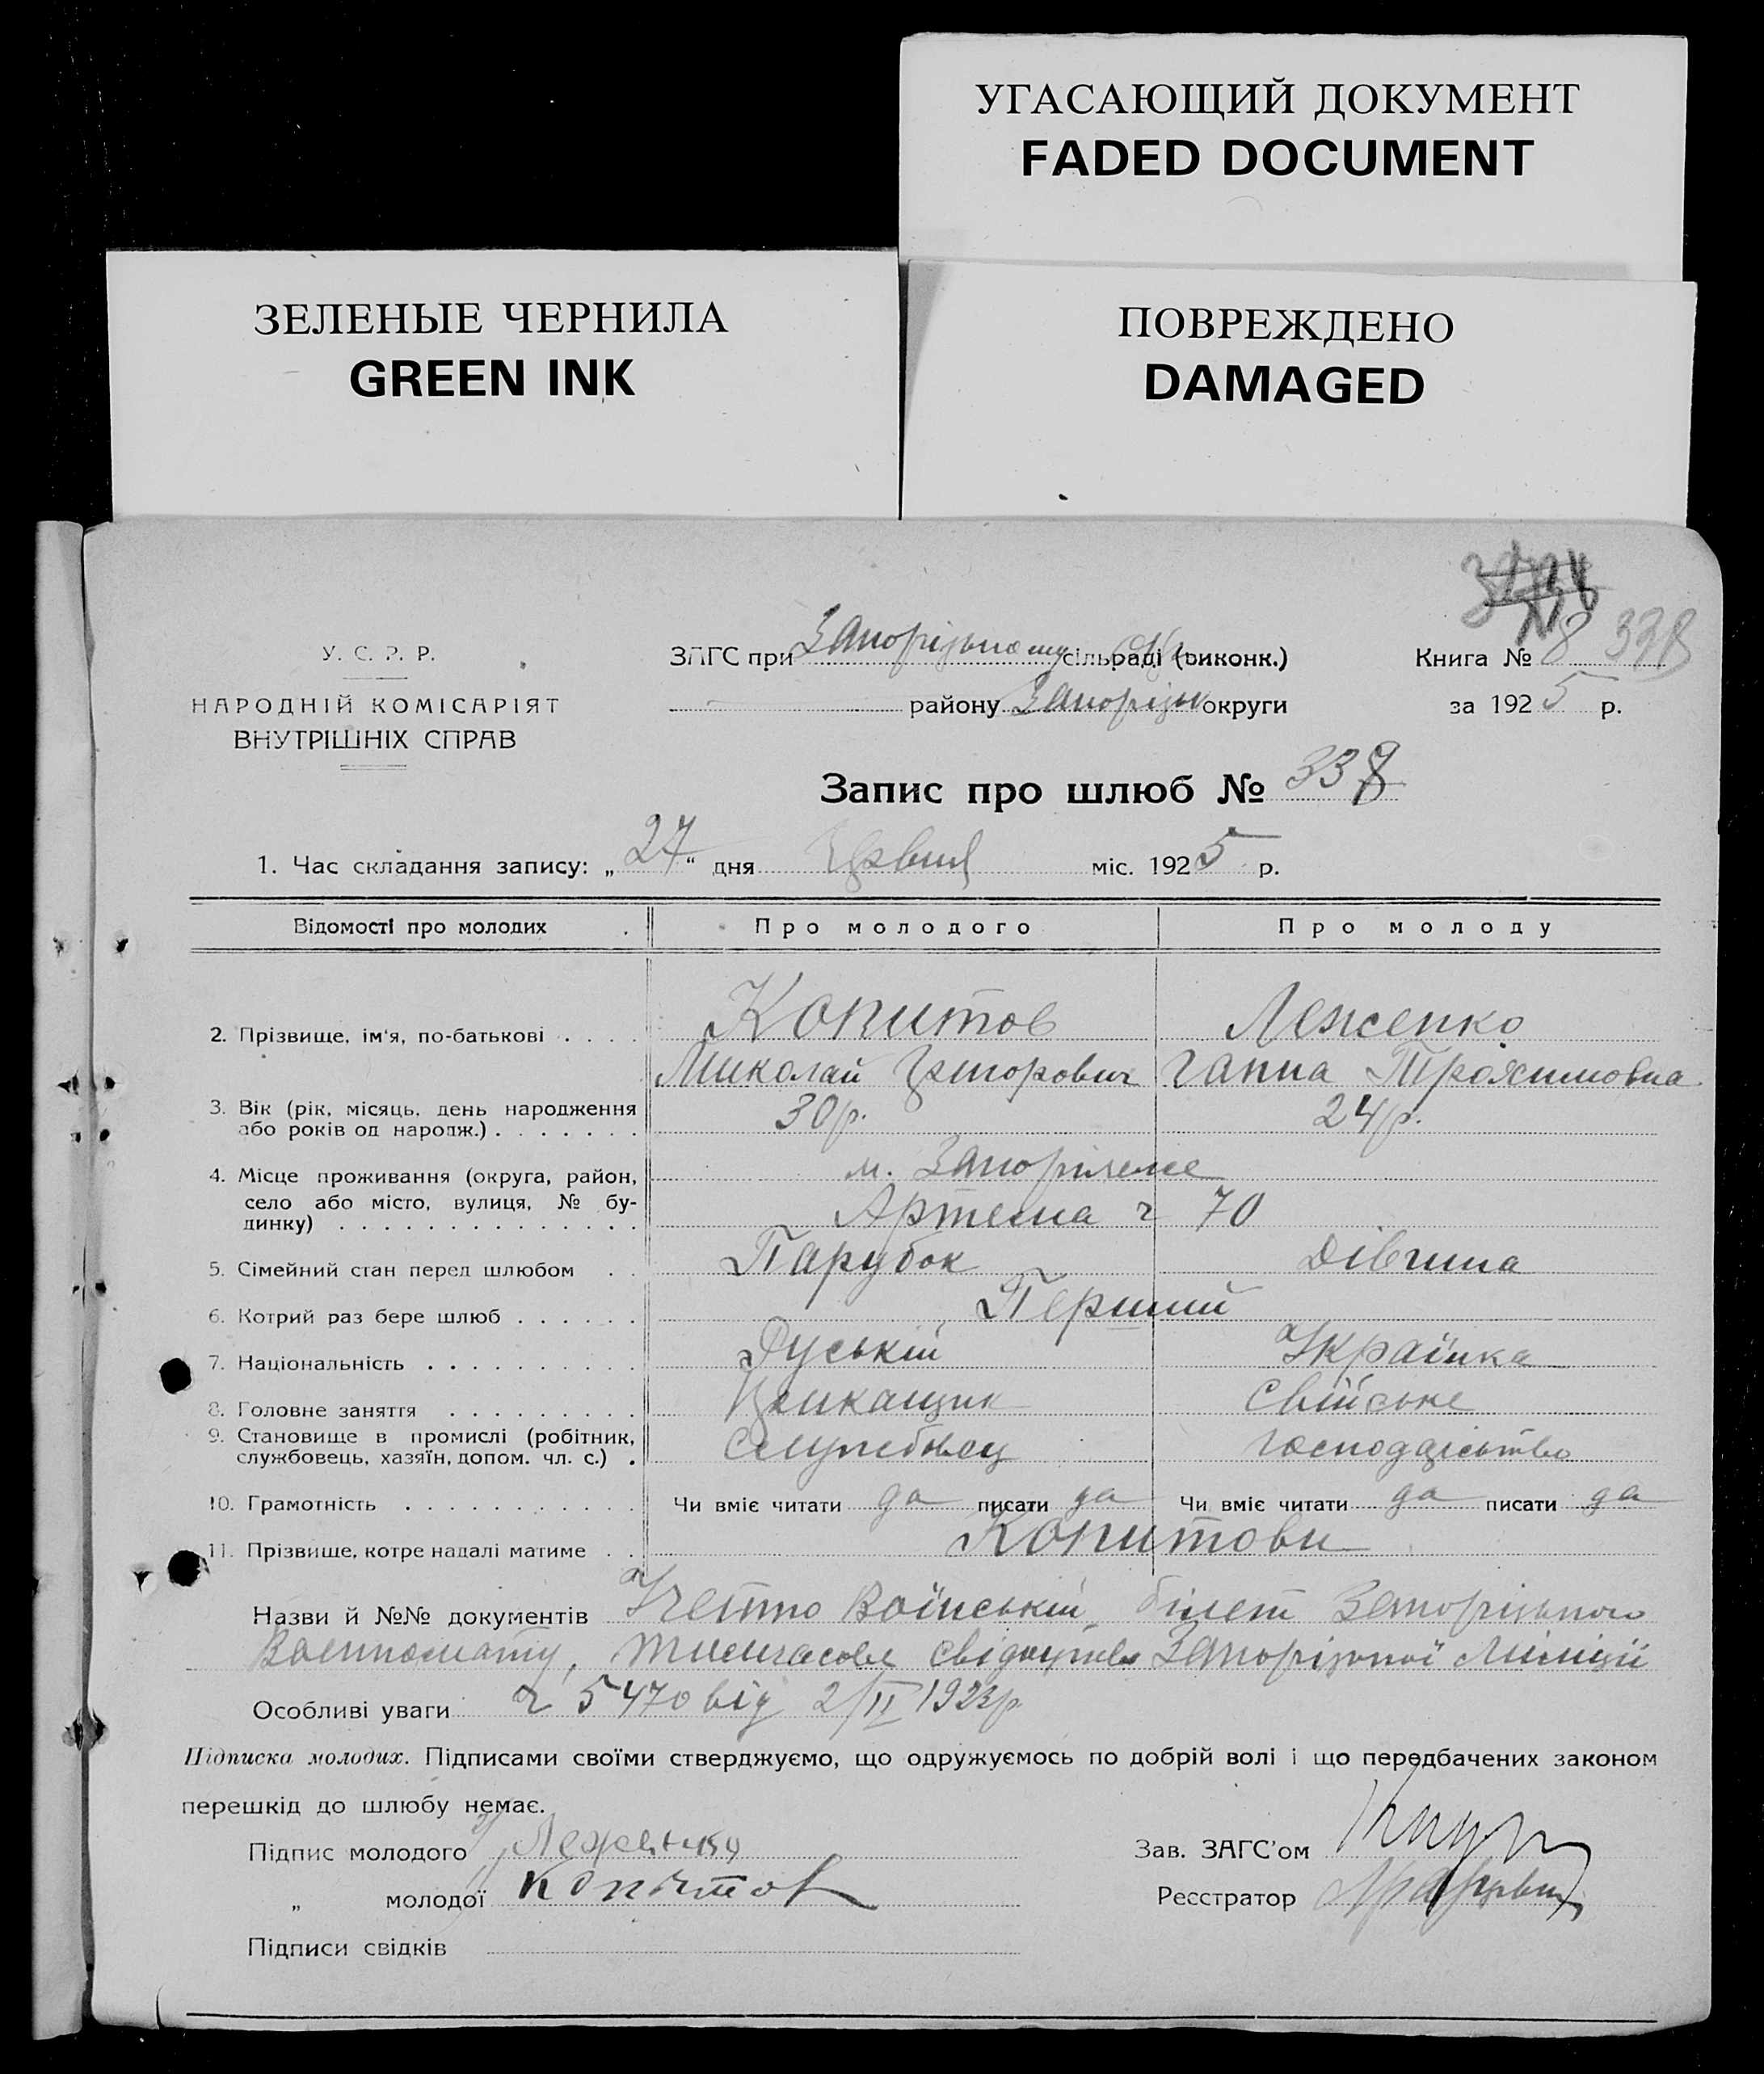 УГАСАЮЩИЙ ДОКУМЕНТ
FADED DOCUMENT
ЗЕЛЕНЫЕ ЧЕРНИЛА
GREEN INK
ПОВРЕЖДЕНО
DAMAGED
У. С. Р. Р.
НАРОДНІЙ КОМІСАРІЯТ
ВНУТРІШНІХ СПРАВ
ЗАГС при Запорізькому сільраді (виконк.)
района Запорізьк округи
Книга № 8 338
за 1925 р.
Запис про шлюб № 338
1. Час складання запису: „27“ дня Червня міс. 1925 р.
Відомості про молодих Про молодого Про молоду
2. Прізвище, ім'я, по-батькові Копитов Леженко
Миколай Григорович Ганна Трохимовна
3. Вік (рік, місяць, день народження 30 р. 24 р.
або років од народж.)
4. Місце проживання (округа, район, м. Запоріжже
село або місто, вулиця, № бу- Артема ч 70
динку)
5. Сімейний стан перед шлюбом Парубок Дівчина
6. Котрий раз бере шлюб Перший
7. Національність Руській Українка
8. Головне заняття Прикащик Свійське
9. Становище в промислі (робітник, Службовец господарьство
службовець, хазяїн, допом. чл. с.)
10. Грамотність Чи вміє читати да писати да Чи вміє читати да писати да
11. Прізвище, котре надалі матиме Копитови
Назви й №№ документів Учетно воїнський білет Запорізького
Военкомату, тимчасове свідоцтво Запорізької Міліції
Особливі уваги ч 5470 від 2/II 1923 р
Підписка молодих. Підписами своїми стверджуємо, що одружуємось по добрій волі і що передбачених законом
перешкід до шлюбу немає.
Підпис молодого Леженко
„ молодої Копытов
Підписи свідків
Зав. ЗАГС'ом
Реєстратор